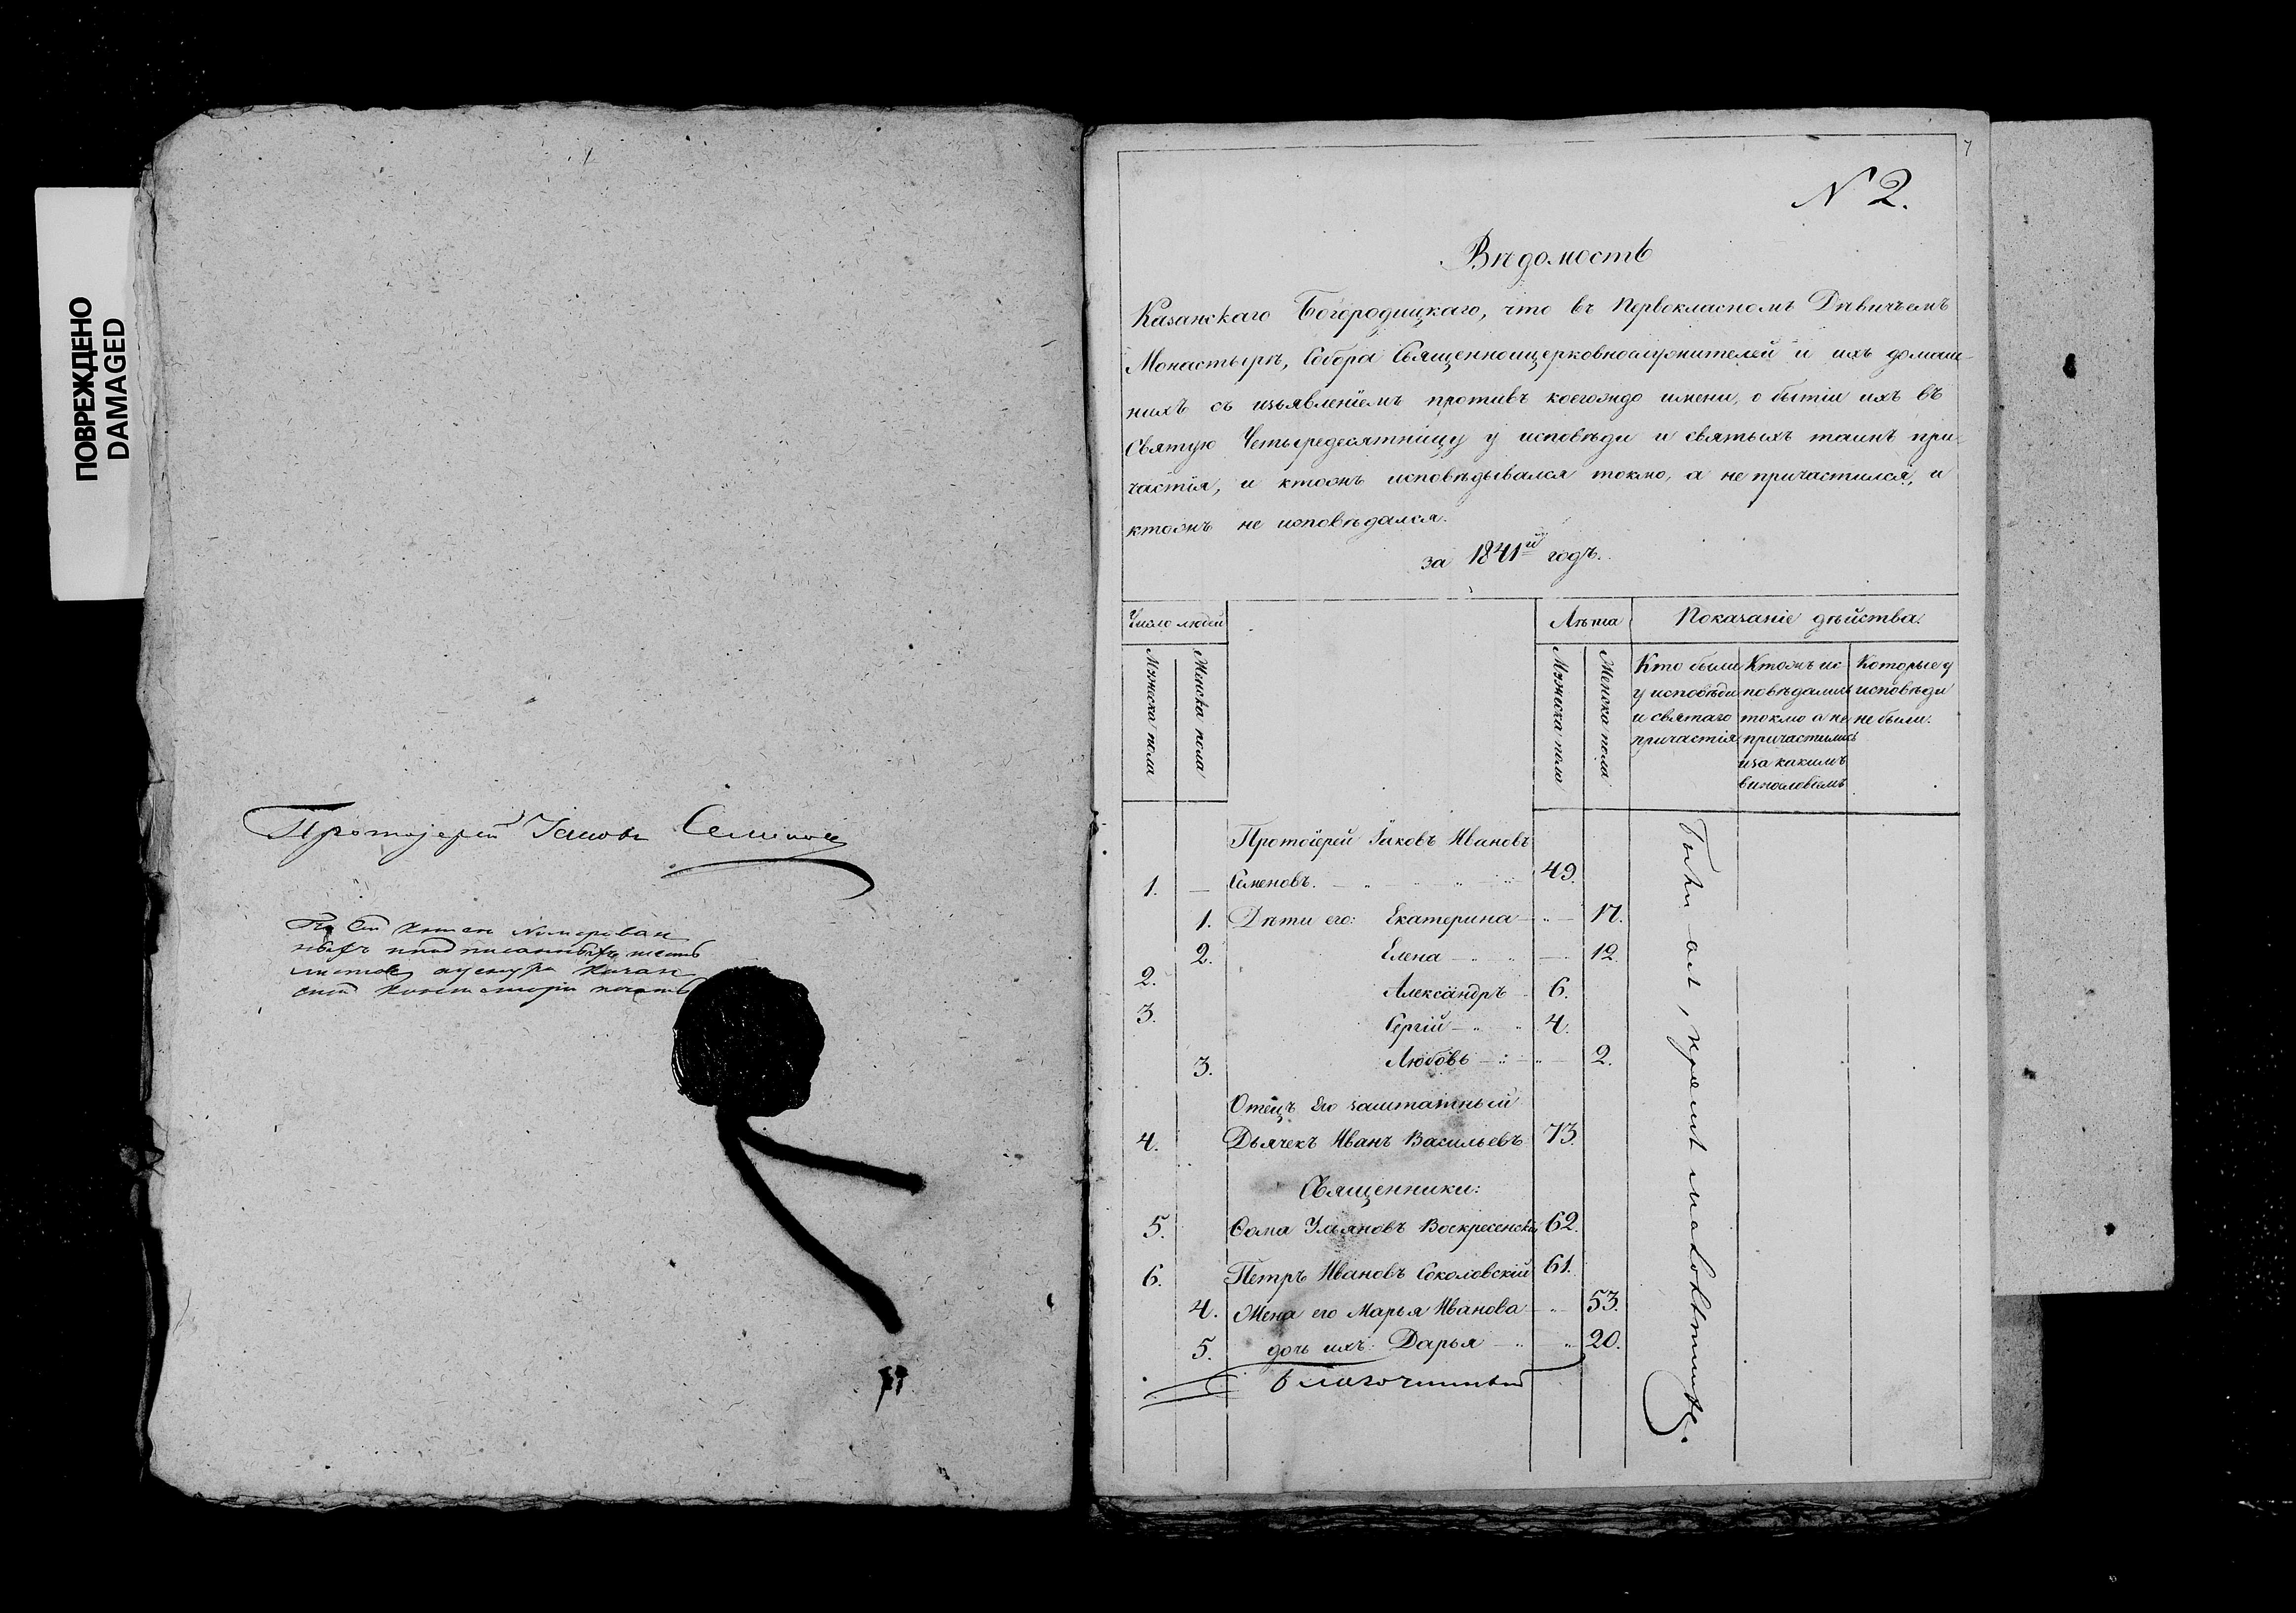 ПОВРЕЖДЕНО
DAMAGED
Протоіерей Іаковъ Семеновъ
листовъ
7
N 2.
Вѣдомость
Казанскаго Богородицкаго, что въ Первокласномъ Дѣвичьемъ
Монастырѣ, Собора Священноицерковнослужителей и ихъ домаш-
нихъ съ изъявленіемъ противъ коегождо имени, о бытіи ихъ въ
Святую Четыредесятницу у исповѣди и святыхъ таинъ при-
частія, и ктожъ исповѣдывался токмо, а не причастился, и
ктожъ не исповѣдался.
за 1841й годъ.
Число людей
Лѣта
Показаніе дѣйства.
Мужеска пола
Женска пола
Мужеска пола
Женска пола
Кто были
у исповѣди
и святаго
причастія
Ктожъ ис-
повѣдались
токмо а не
причастились
иза какимъ
винословіемъ
Которые у
исповѣди
не были.
Протоіерей Іаковъ Ивановъ
1. — Семеновъ. 49.
1. Дѣти его: Екатерина 17.
2. Елена 12.
2. Александръ 6.
3. Сергій 4.
3. Любовь 2.
Отецъ Его заштатный
4. Дьячекъ Иванъ Васильевъ 73.
Священники:
5. Ѳома Ульяновъ Воскресенскій 62.
6. Петръ Ивановъ Соколовскій 61.
4. Жена его Марья Иванова 53.
5. дочь ихъ: Дарья 20.
Благочинный
Были всѣ, кромѣ малолѣтнихъ.